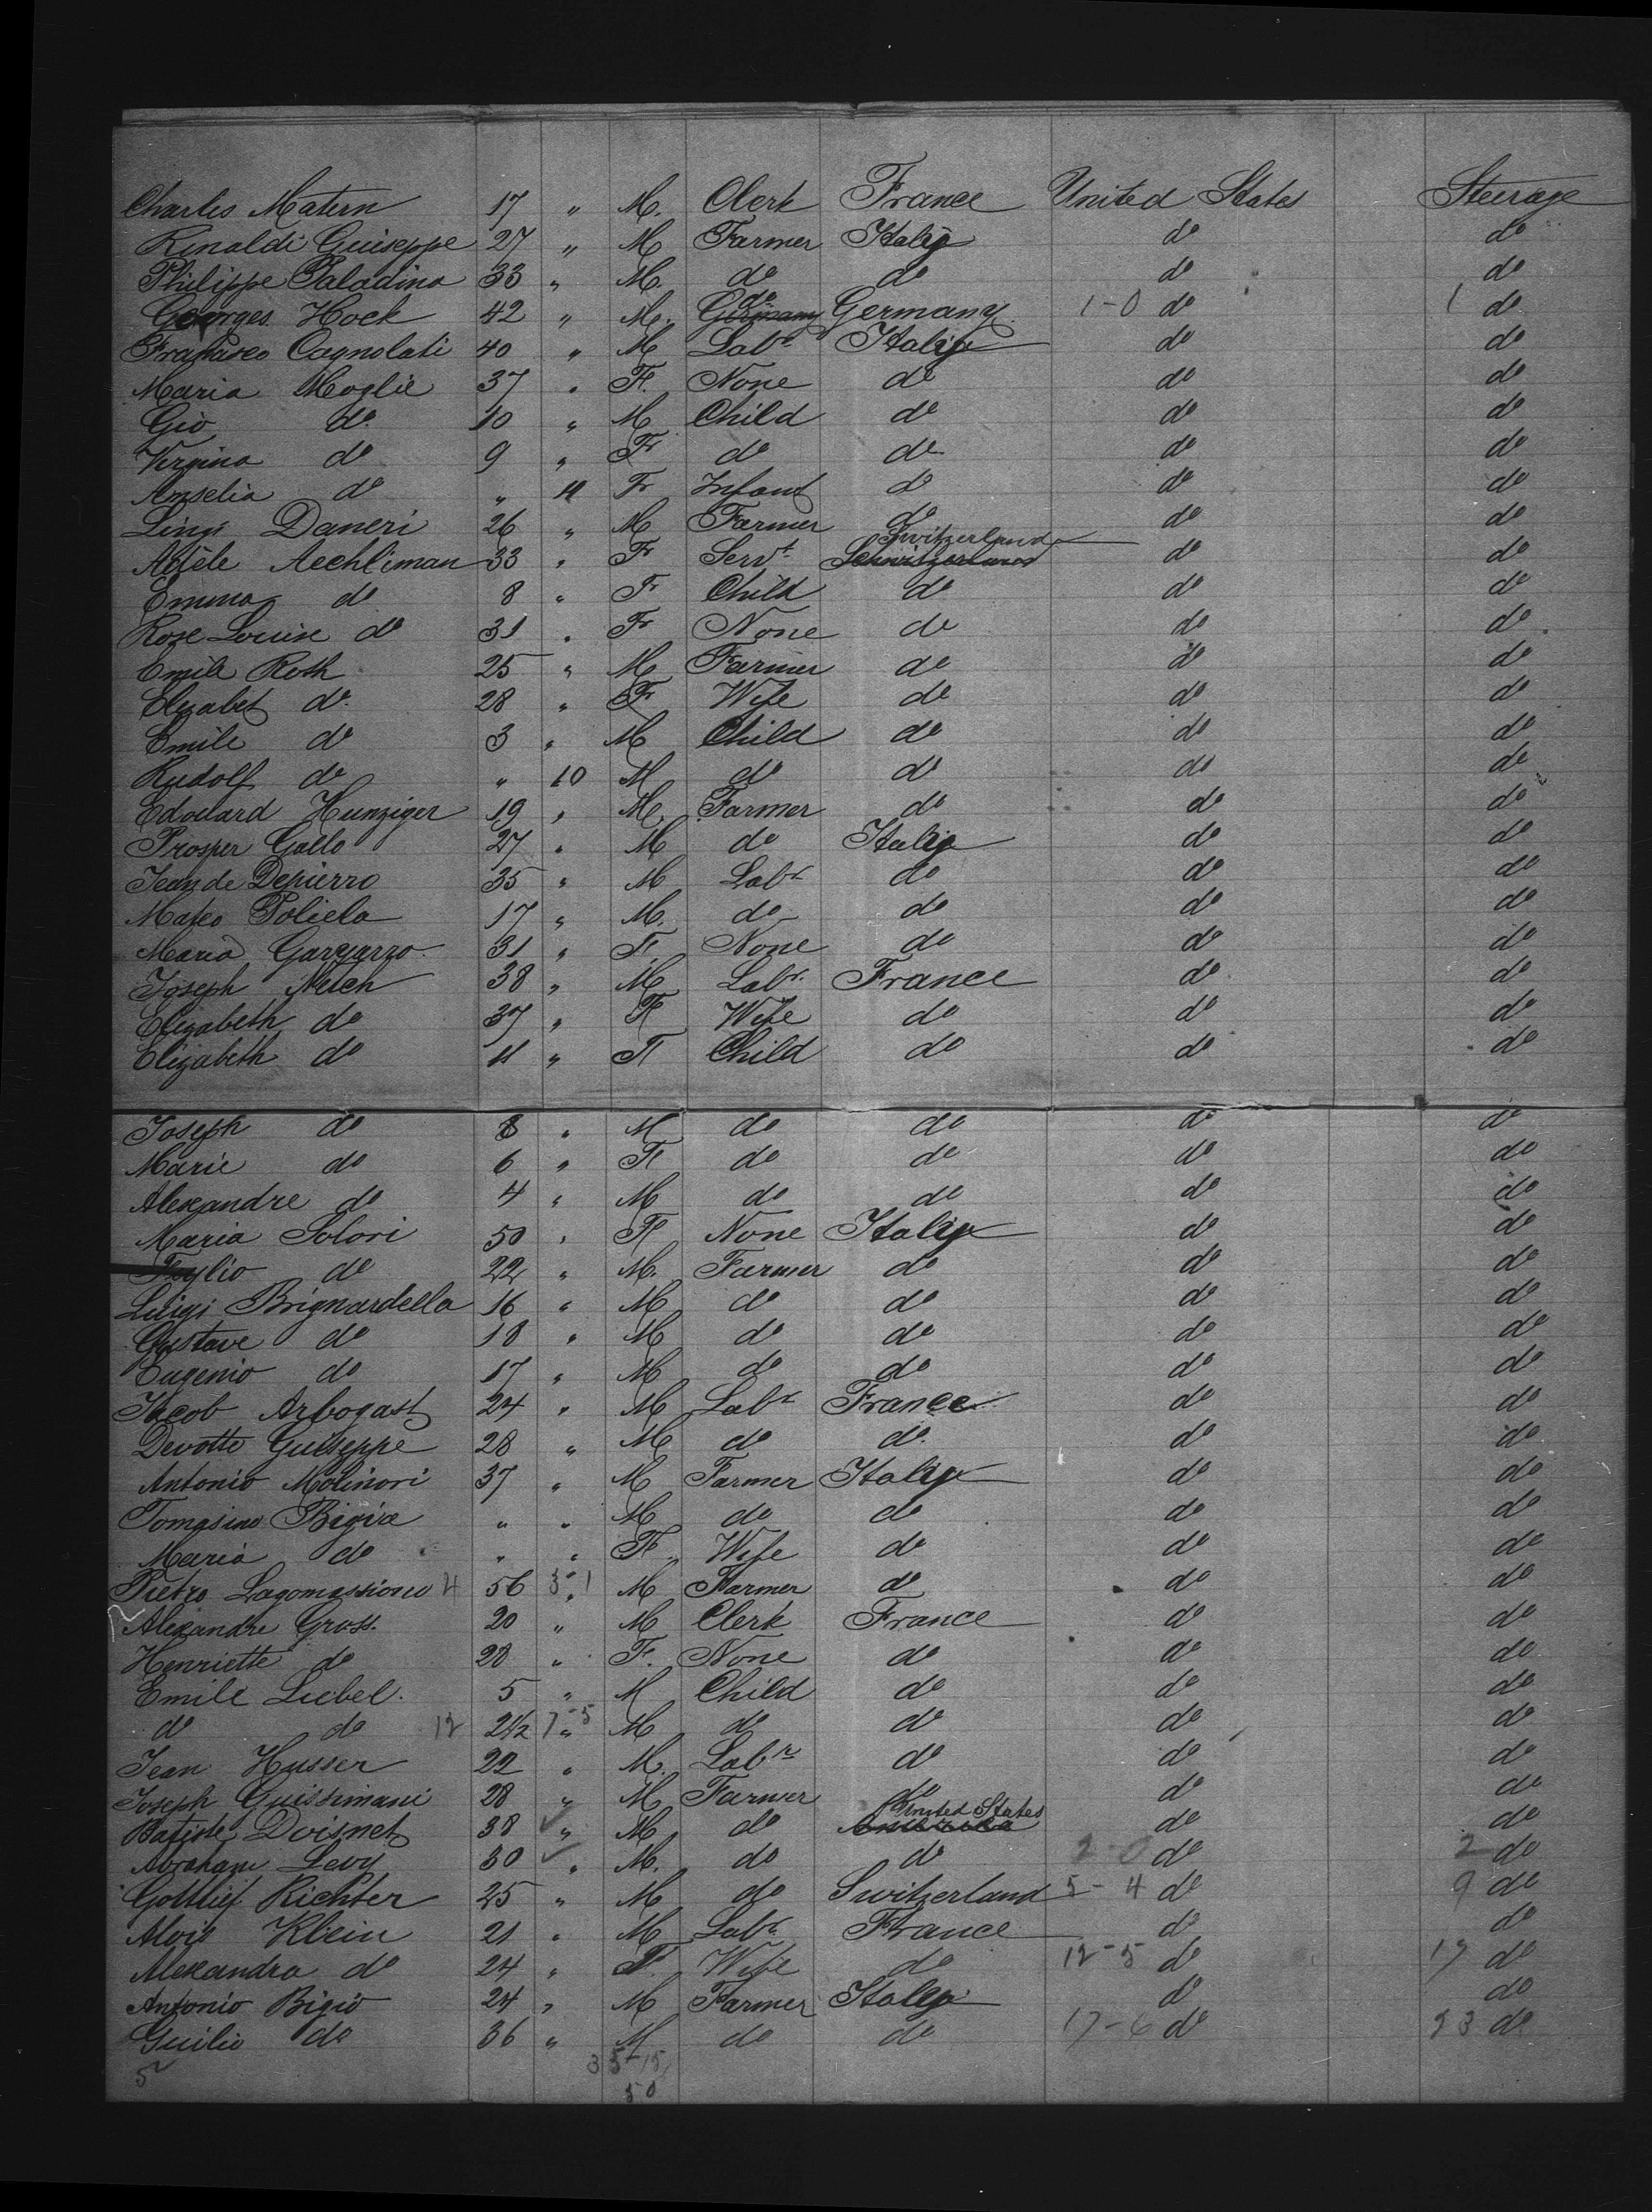 Charles Matern 17 " M. Clerk France United States Steerage
Rinaldi Guiseppe 27 " M Farmer Italy do do
Philippe Paladino 33 " M. do do do do
Georges Hock 42 " M. Germany do Germany 1-0 do 1 do
Cagnolati 40 " M Labr Italy do do
Maria Moglie 37 " F. None do do do
Gio do 10 " M Child do do do
Virgina do 9 " F do do do do
Amselia do " 11 F Infant do do do
Lingi Daneri 26 " M Farmer do do do
Adèle Aechliman 33 " F Servt Schwitzerland Switzerland do do
Emma do 8 " F Child do do do
Rose Louise do 31 " F None do do do
Emile Roth 25 " M Farmer do do do
Elizabet do 28 " F Wife do do do
Emile do 3 " M Child do do do
Rudolf do " 10 M do do do do
Edouard Hunziger 19 " M. Farmer do do do
Prosper Gallo 27 " M do Italy do do
Jean de Depierro 35 " M Labr do do do
Mateo Poliela 17 " M. do do do do
Maria Gargarro 31 " F. None do do do
Joseph Netch 38 " M Labr France do do
Elizabeth do 37 " F Wife do do do
Elizabeth do 11 " F Child do do do
Joseph do 8 " M do do do do
Marie do 6 " F do do do do
Alexandre do 4 " M do do do do
Maria Solari 50 " F None Italy do do
do 22 " M. Farmer do do do
Luigi Brignardella 16 " M do do do do
Gustave do 18 " M do do do do
Eugenio do 17 " M do do do do
Jacob Arbogast 24 " M Labr France do do
Devotto Guiseppe 28 " M do do do do
Antonio Molinori 37 " M Farmer Italy do do
Tomasino Bigia " " M do do do do
Maria do " " F. Wife do do do
Pietro Lagomassiono 4 56 3-1 " M Farmer do do do
Alexandre Gross. 20 " M Clerk France do do
Henriette do 28 " F. None do do do
Emile Liebel. 5 " M Child do do do
do do 12 2 1/2 7-5 " M do do do do
Jean Husser 22 " M. Labr do do do
Joseph Guissimani 28 " M Farmer do do do
Batiste Doisnet 38 " M do America United States do do
Abraham Levy 30 " M. do do 2-0 do 2 do
Gottlief Richter 25 " M do Switzerland 5-4 do 9 do
Alois Klein 21 " M Labr France do do
Alexandra do 24 " F. Wife do 12-5 do 17 do
Antonio Bigio 24 " M Farmer Italy do do
Guilio do 36 " M do do 17-6 do 23 do
52 35-15
50